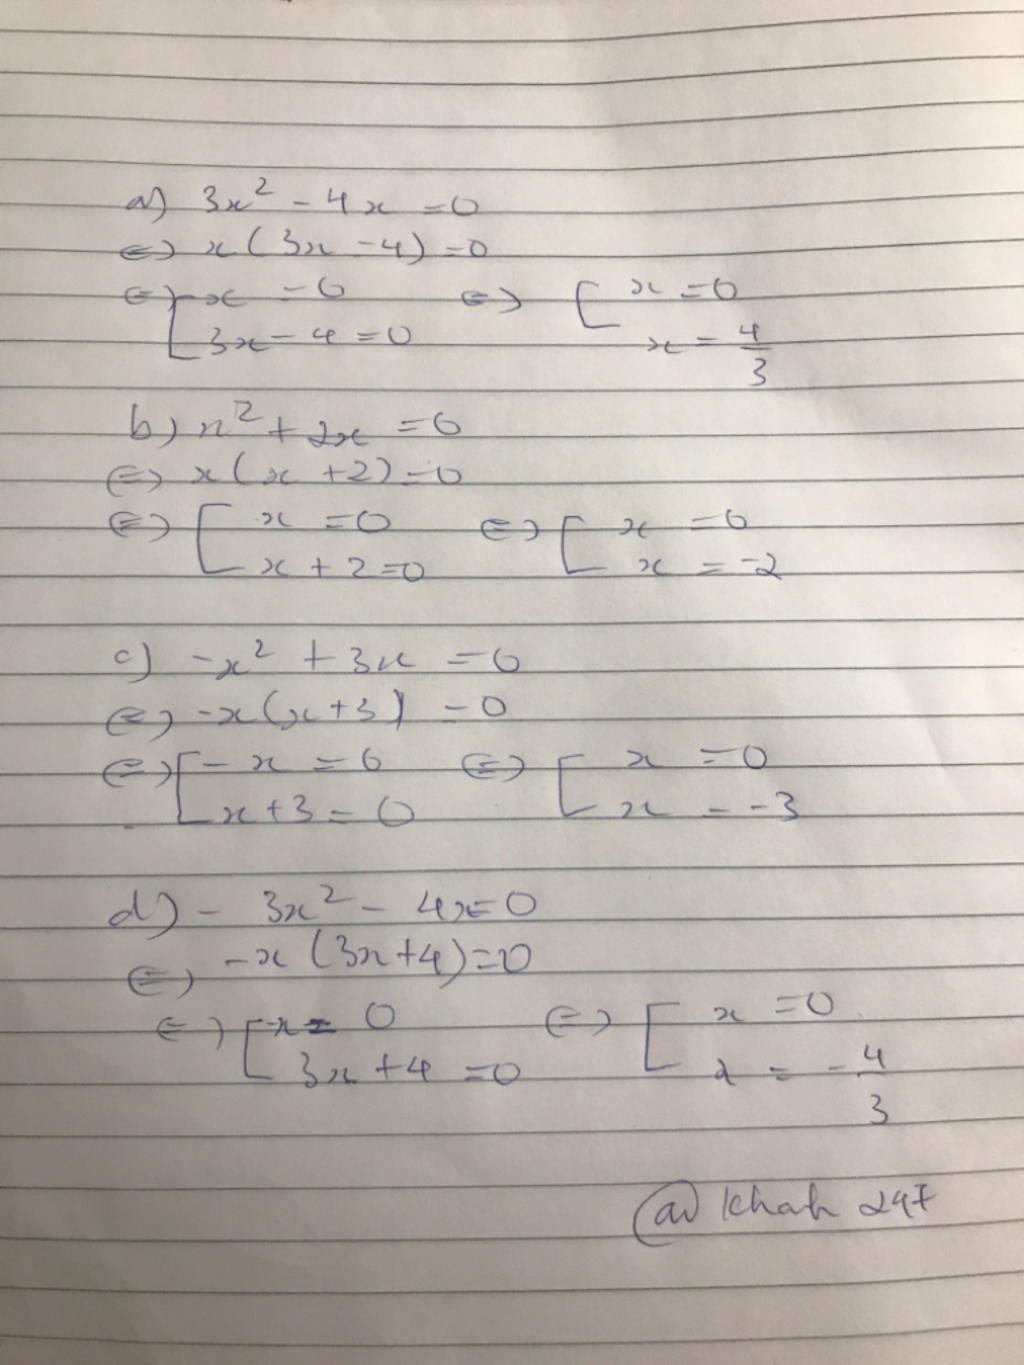 a) 3x² - 4x = 0
⇔ x(3x - 4) = 0
⇔ [ x = 0 ⇔ [ x = 0
3x - 4 = 0 x = 4/3
b) x² + 2x = 0
⇔ x(x + 2) = 0
⇔ [ x = 0 ⇔ [ x = 0
x + 2 = 0 x = -2
c) -x² + 3x = 0
⇔ -x(x + 3) = 0
⇔ [ -x = 0 ⇔ [ x = 0
x + 3 = 0 x = -3
d) - 3x² - 4x = 0
⇔ -x(3x + 4) = 0
⇔ [ -x = 0 ⇔ [ x = 0
3x + 4 = 0 x = -4/3
@ khah 247